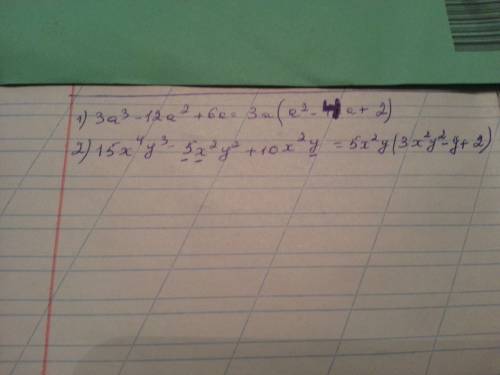 1) 3a³-12a²+6a=3a(a²-4a+2)
2) 15x⁴y³-5x²y²+10x²y=5x²y(3x²y²-y+2)